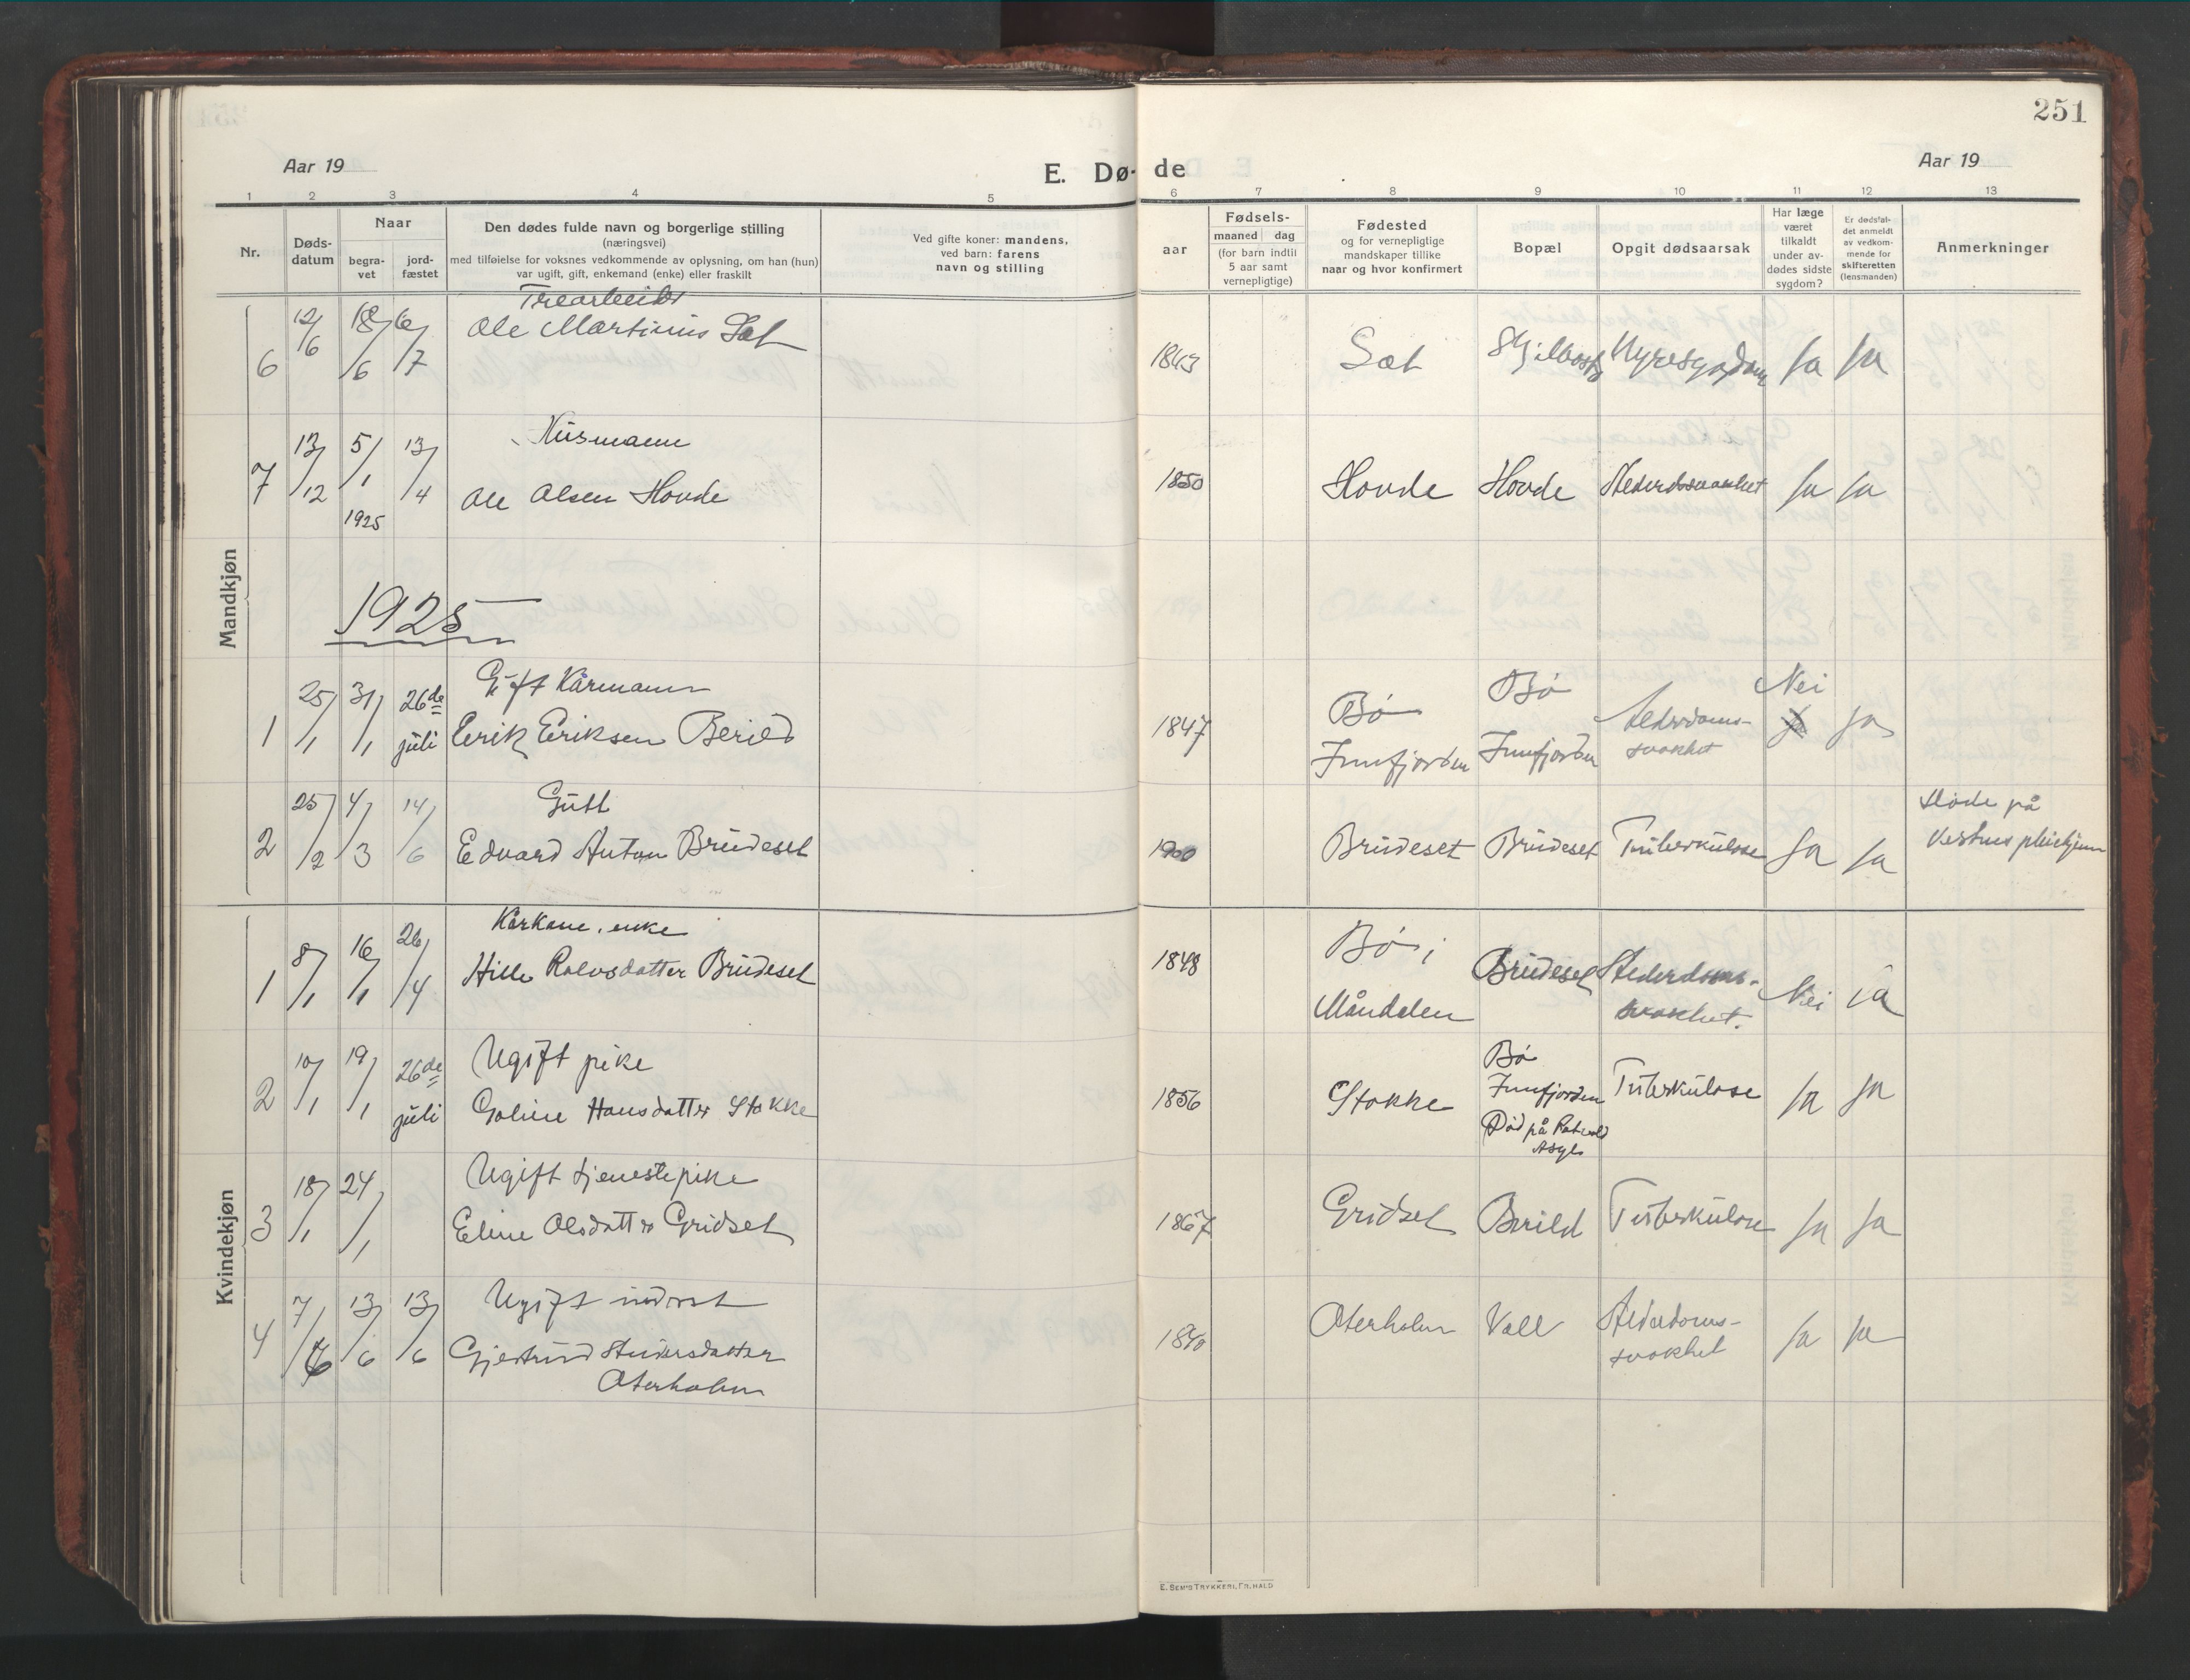 251
Aar 19
E. Dø-
de
Aar 19
1 2 3 4 5 6 7 8 9 10 11 12 13
Nr.
Døds-
datum
Naar
begra-
vet
jord-
fæstet
Den dødes fulde navn og borgerlige stilling
(næringsvei)
med tilføielse for voksnes vedkommende av oplysning, om han (hun)
var ugift, gift, enkemand (enke) eller fraskilt
Ved gifte koner: mandens,
ved barn: farens
navn og stilling
aar
Fødsels-
maaned dag
(for barn indtil
5 aar samt
vernepligtige)
Fødested
og for vernepligtige
mandskaper tillike
naar og hvor konfirmert
Bopæl
Opgit dødsaarsak
Har læge
været
tilkaldt
under av-
dødes sidste
sygdom?
Er dødsfal-
det anmeldt
av vedkom-
mende for
skifteretten
(lensmanden)
Anmerkninger
Mandkjøn
Trearbeider
6 12/6 18/6 6/7 Ole Martinus Sæt 1843 Sæt Nyresygdom Ja Ja
Husmann
7 13/12 5/1 1925 13/4 Ole Olsen Hovde 1850 Hovde Hovde Alderdssvakhet Ja Ja
1925
Gift Kårmann
1 25/1 31/1 26de juli Eerik Eeriksen Berild 1847 Bø Innfjorden Bø Innfjorden Alderdoms-
svakhet Nei Ja
Gutt
2 25/2 4/3 14/6 Edvard Anton Brudeset 1900 Brudeset Brudeset Tuberkulose Ja Ja Døde på
Vestnes pleiehjem
Kvindekjøn
Kårkone, enke
1 8/1 16/1 26/4 Hille Rolvsdatter Brudeset 1848 Bø i
Måndalen Brudeset Alderdoms-
svakhet. Nei ja
Ugift pike
2 10/1 19/1 26de juli Goline Hansdatter Stokke 1856 Stokke Bø
Innfjorden
Død på
Asyl Tuberkulose Ja Ja
Ugift tjenestepike
3 18/1 24/1 Eline Olsdatter Gridset 1867 Gridset Berild Tuberkulose Ja Ja
Ugift inderst
4 7/6 13/6 13/6 Gjertrud Siversdatter
Oterholm 1840 Oterholm Voll Alderdoms-
svakhet Ja Ja
E. SEM'S TRYKKERI, FR.HALD